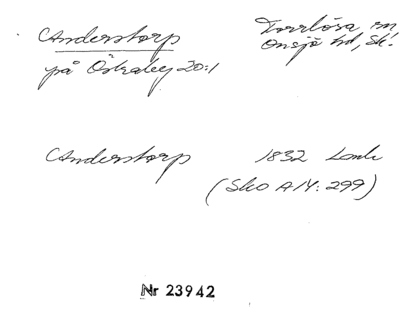 Anderstorp
Torrlösa sn
Onsjö hd, Sk.
på Östraby 20:1
Anderstorp 1832 Lantm
(Sko A14: 299)
Nr 23942